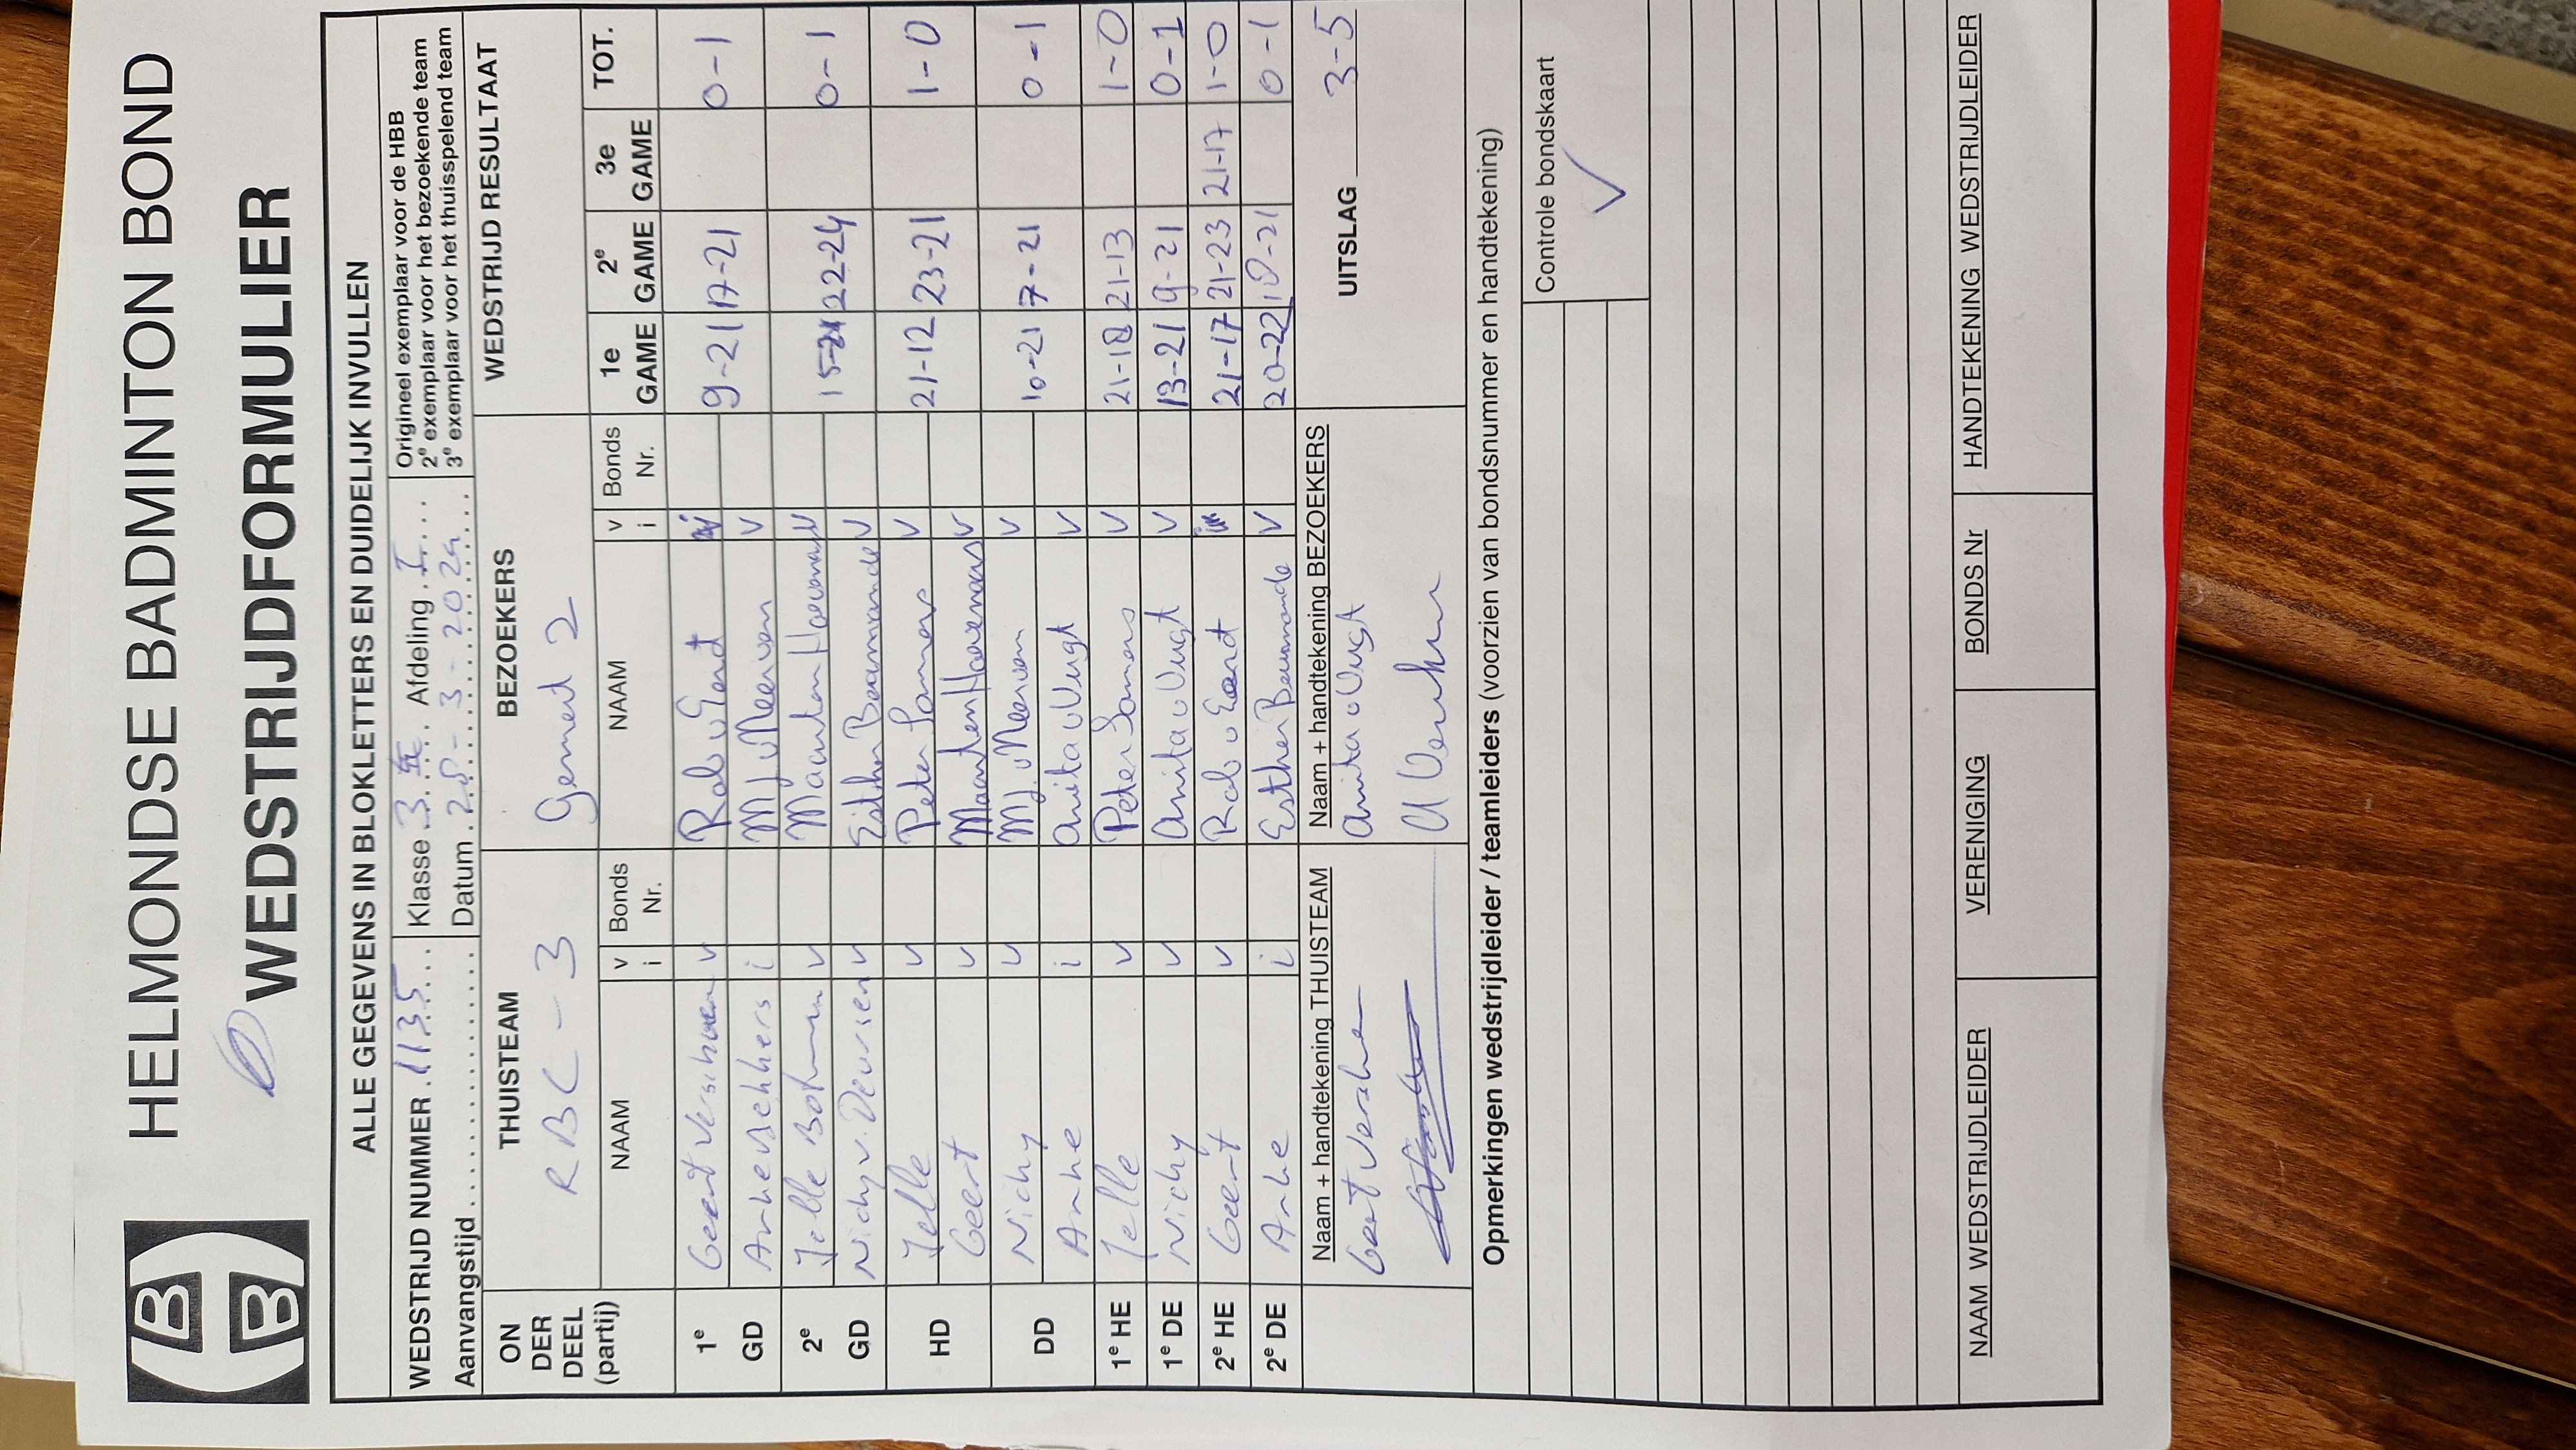 HELMONDSE BADMINTON BOND
WEDSTRIJDFORMULIER
ALLE GEGEVENS IN BLOKLETTERS EN DUIDELIJK INVULLEN
WEDSTRIJD NUMMER 1135 Klasse 3 Afdeling I
Aanvangstijd Datum 28-3-2024
Origineel exemplaar voor de HBB
2e exemplaar voor het bezoekende team
3e exemplaar voor het thuisspelend team
ON DER DEEL (partij) THUISTEAM BEZOEKERS WEDSTRIJD RESULTAAT
RBC-3 Gemert 2
NAAM v i Bonds Nr. NAAM v i Bonds Nr. 1e GAME 2e GAME 3e GAME TOT.
1e Geert Verschuren v Rob v Eerd 9-21 17-21 0-1
GD Anke i MJ v Neerven v
2e Jelle v Maarten v 15-21 22-24 0-1
GD Nicky v. Deursen v Esther v
HD Jelle v Peter Somers v 21-12 23-21 1-0
Geert v Maarten v
DD Nicky v MJ v Neerven v 10-21 7-21 0-1
Anke i Anita v Vugt v
1e HE Jelle v Peter Somers v 21-18 21-13 1-0
1e DE Nicky v Anita v Vugt v 13-21 9-21 0-1
2e HE Geert v Rob v Eerd 21-17 21-23 21-17 1-0
2e DE Anke i Esther v 20-22 18-21 0-1
Naam + handtekening THUISTEAM Naam + handtekening BEZOEKERS UITSLAG 3-5
Geert Anita v Vugt
Opmerkingen wedstrijdleider / teamleiders (voorzien van bondsnummer en handtekening)
Controle bondskaart
NAAM WEDSTRIJDLEIDER VERENIGING BONDS Nr HANDTEKENING WEDSTRIJDLEIDER